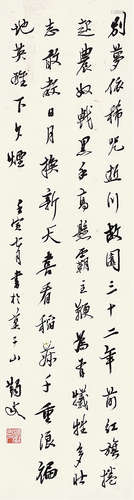 别梦依稀咒逝川故园三十二年前红旗捲
起农奴戟黑手高悬霸主鞭为有牺牲多壮
志敢教日月换新天喜看稻菽千重浪遍
地英雄下夕烟